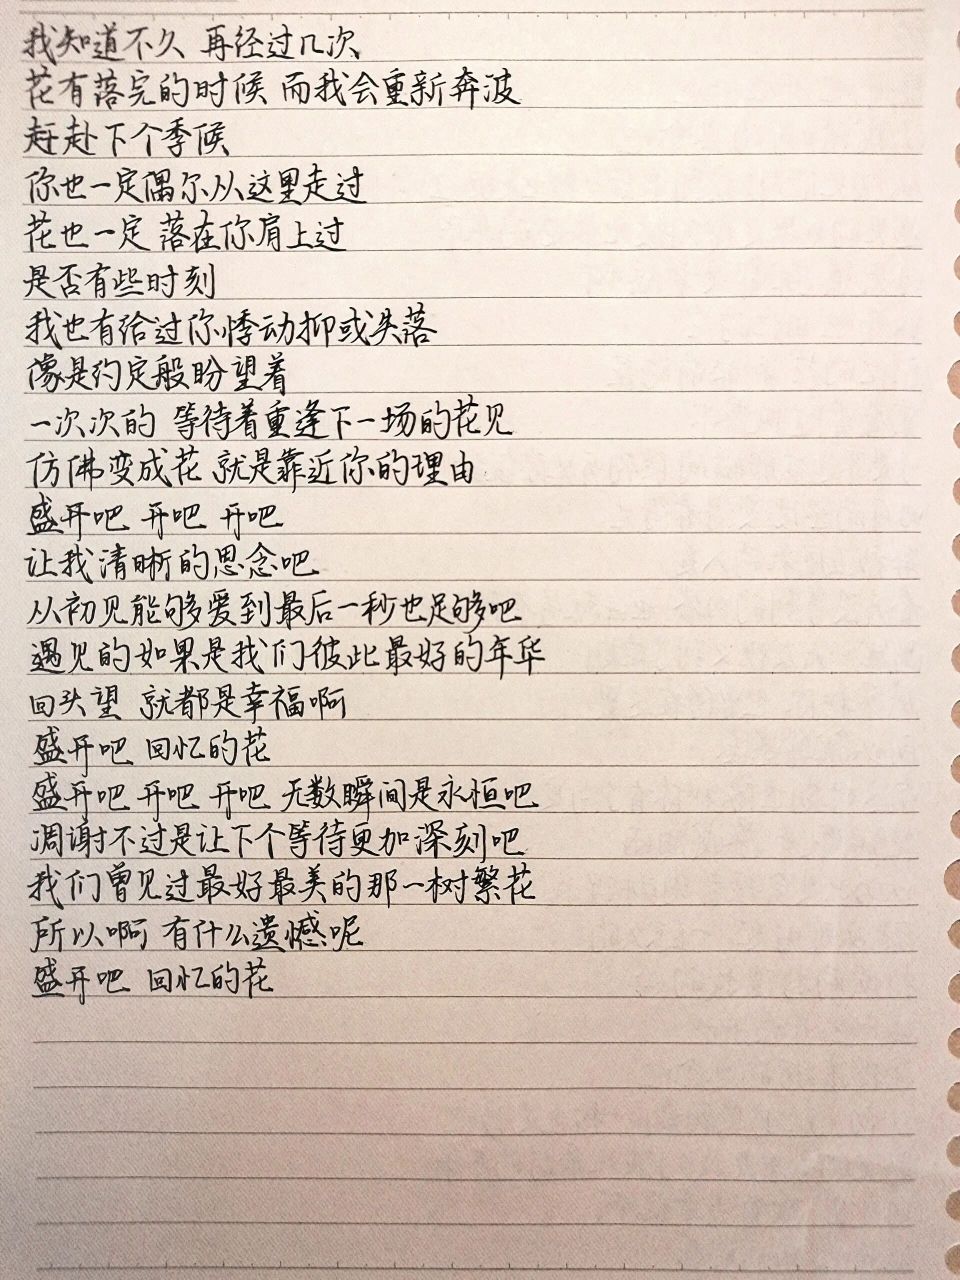 我知道不久 再经过几次
花有落完的时候 而我会重新奔波
赶赴下个季候
你也一定偶尔从这里走过
花也一定 落在你肩上过
是否有些时刻
我也有给过你悸动抑或失落
像是约定般盼望着
一次次的 等待着重逢下一场的花见
仿佛变成花 就是靠近你的理由
盛开吧 开吧 开吧
让我清晰的思念吧
从初见能够爱到最后一秒也足够吧
遇见的如果是我们彼此最好的年华
回头望 就都是幸福啊
盛开吧 回忆的花
盛开吧 开吧 开吧 无数瞬间是永恒吧
凋谢不过是让下个等待更加深刻吧
我们曾见过最好最美的那一树繁花
所以啊 有什么遗憾呢
盛开吧 回忆的花